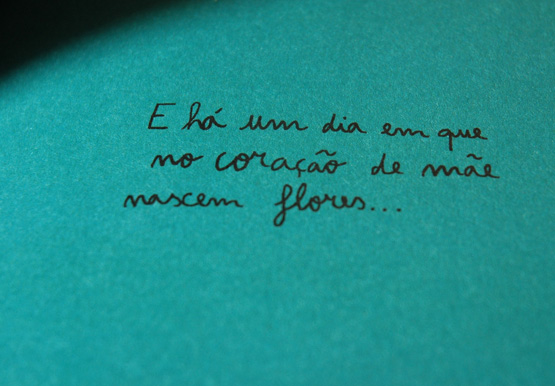 E há um dia em que
no coração de mãe
nascem flores...